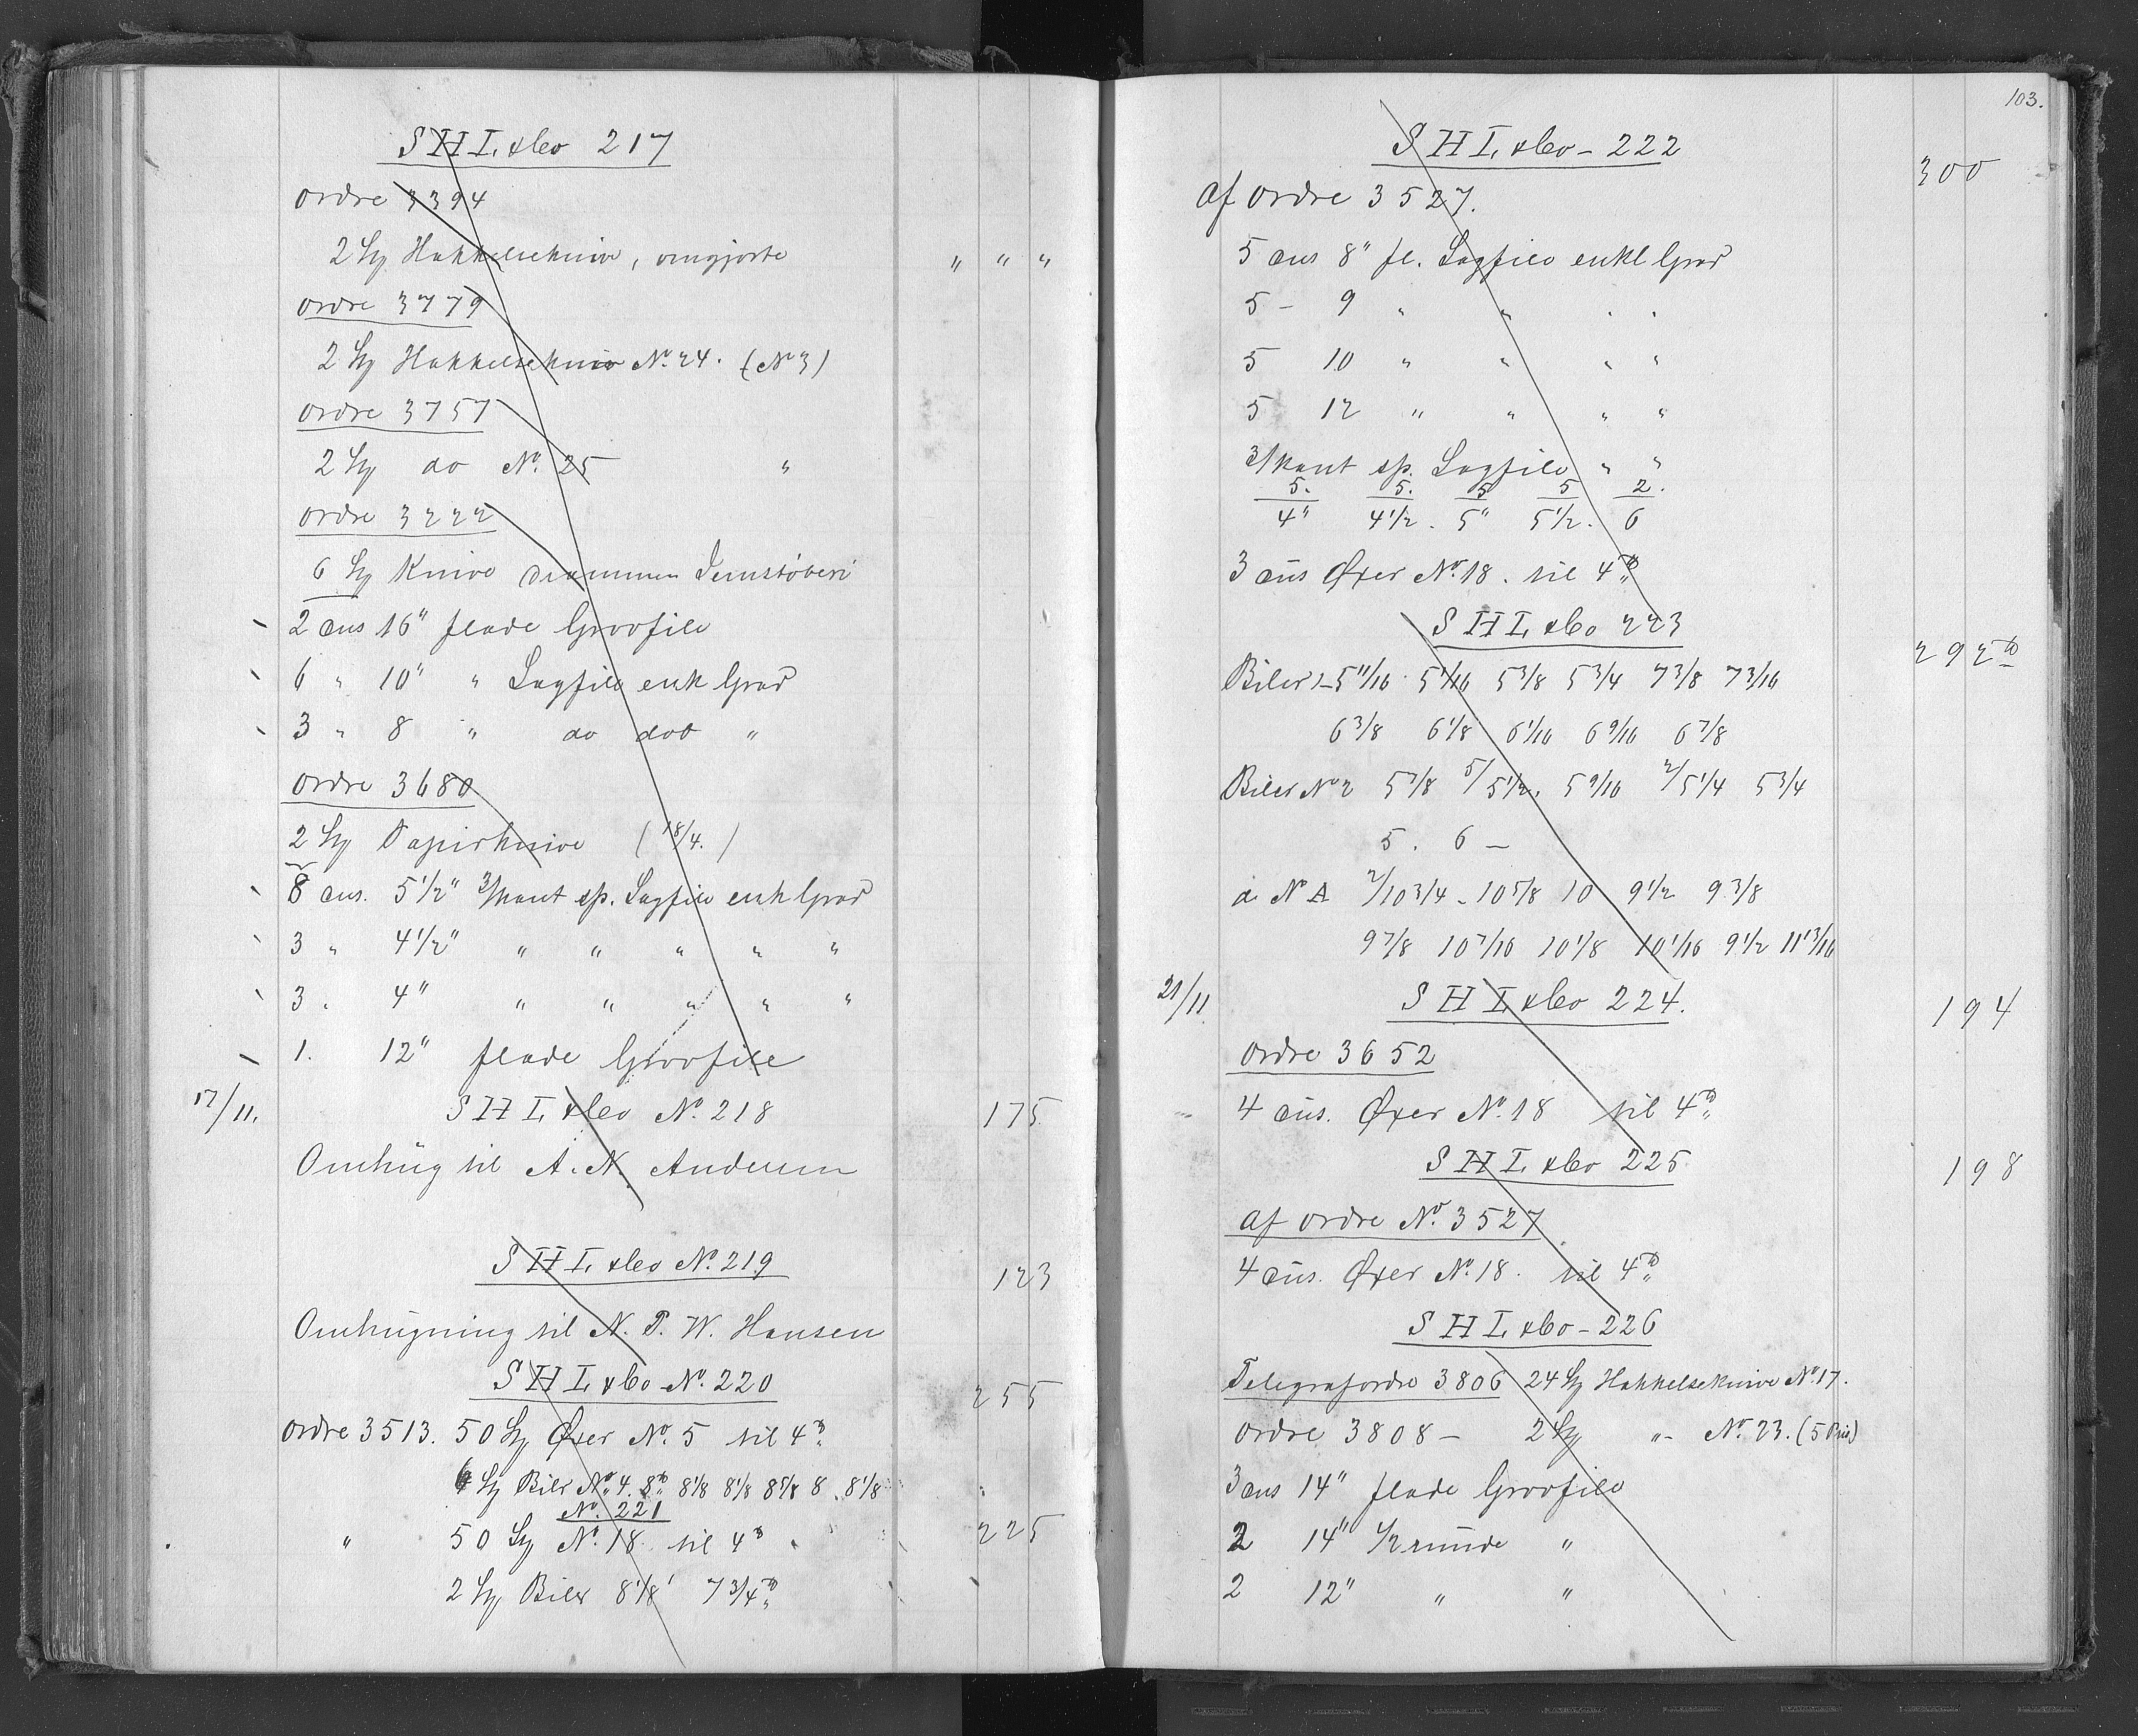 S H I. & Co 217
Ordre 3394
2 Stk Hakkelseknive, omgjorte " " "
Ordre 3779
2 Stk Hakkelseknive No. 24. (No 3)
Ordre 3757
2 Stk do No. 25 "
Ordre 3222
6 Stk Knive Drammen Jernstøberi
2 dus 16" flade Grovfile
6 " 10" " Sagfile enk Grad
3 " 8 " do dob "
Ordre 3680
2 Stk Papirknive (18/4.)
8 dus. 5 1/2" 3/kant sp. Sagfile enk Grad
3 " 4 1/2" " " " " "
3 " 4" " " " " "
1. 12" flade Grovfile
17/11. S H I. & Co No. 218 175
Omhug til A. N. Andersen
S H I. & Co No. 219
123
Omhugning til N. P. W. Hansen
S H I. & Co - No. 220
255
Ordre 3513. 50 Stk Øxer No. 5 til 4 ℔
6 Stk Biler No. 4. 8 ℔ 8 1/8 8 1/8 8 5/8 8 8 1/8
No. 221
" 50 Stk No. 18 til 4 ℔ 225
2 Stk Biler 8 1/8 7 3/4 ℔
103.
S H I. & Co - 222
300
Af Ordre 3527.
5 dus 8" fl. Sagfile enkl Grad
5 - 9 " " " "
5 10 " " " "
5 12 " " " "
3/kant sp. Sagfile " "
5. 5. 5 5 2.
4" 4 1/2. 5" 5 1/2. 6
3 dus Øxer No. 18. til 4 ℔
S H I. & Co 223
292 ℔
Biler 1 - 5 11/16 5 1/16 5 3/8 5 3/4 7 3/8 7 3/16
6 3/8 6 1/8 6 1/16 6 9/16 6 7/8
Biler No 2 5 7/8 5/5 1/2. 5 9/16 2/5 1/4 5 3/4
5. 6 -
do No A 2/10 3/4 - 10 5/8 10 9 1/2 9 3/8
9 7/8 10 7/16 10 1/8 10 1/16 9 1/2 11 13/16
21/11. S H I. & Co 224.
194
Ordre 3652
4 dus. Øxer No. 18 til 4 ℔
S H I. & Co 225
198
Af Ordre No. 3527
4 dus. Øxer No. 18. til 4 ℔
S H I. & Co - 226
Telegrafordre 3806 24 Stk Hakkelseknive No. 17.
Ordre 3808 - 2 Stk " - No. 23. (5 )
3 dus 14" flade Grovfile
2 14" 1/2 runde "
2 12" " "